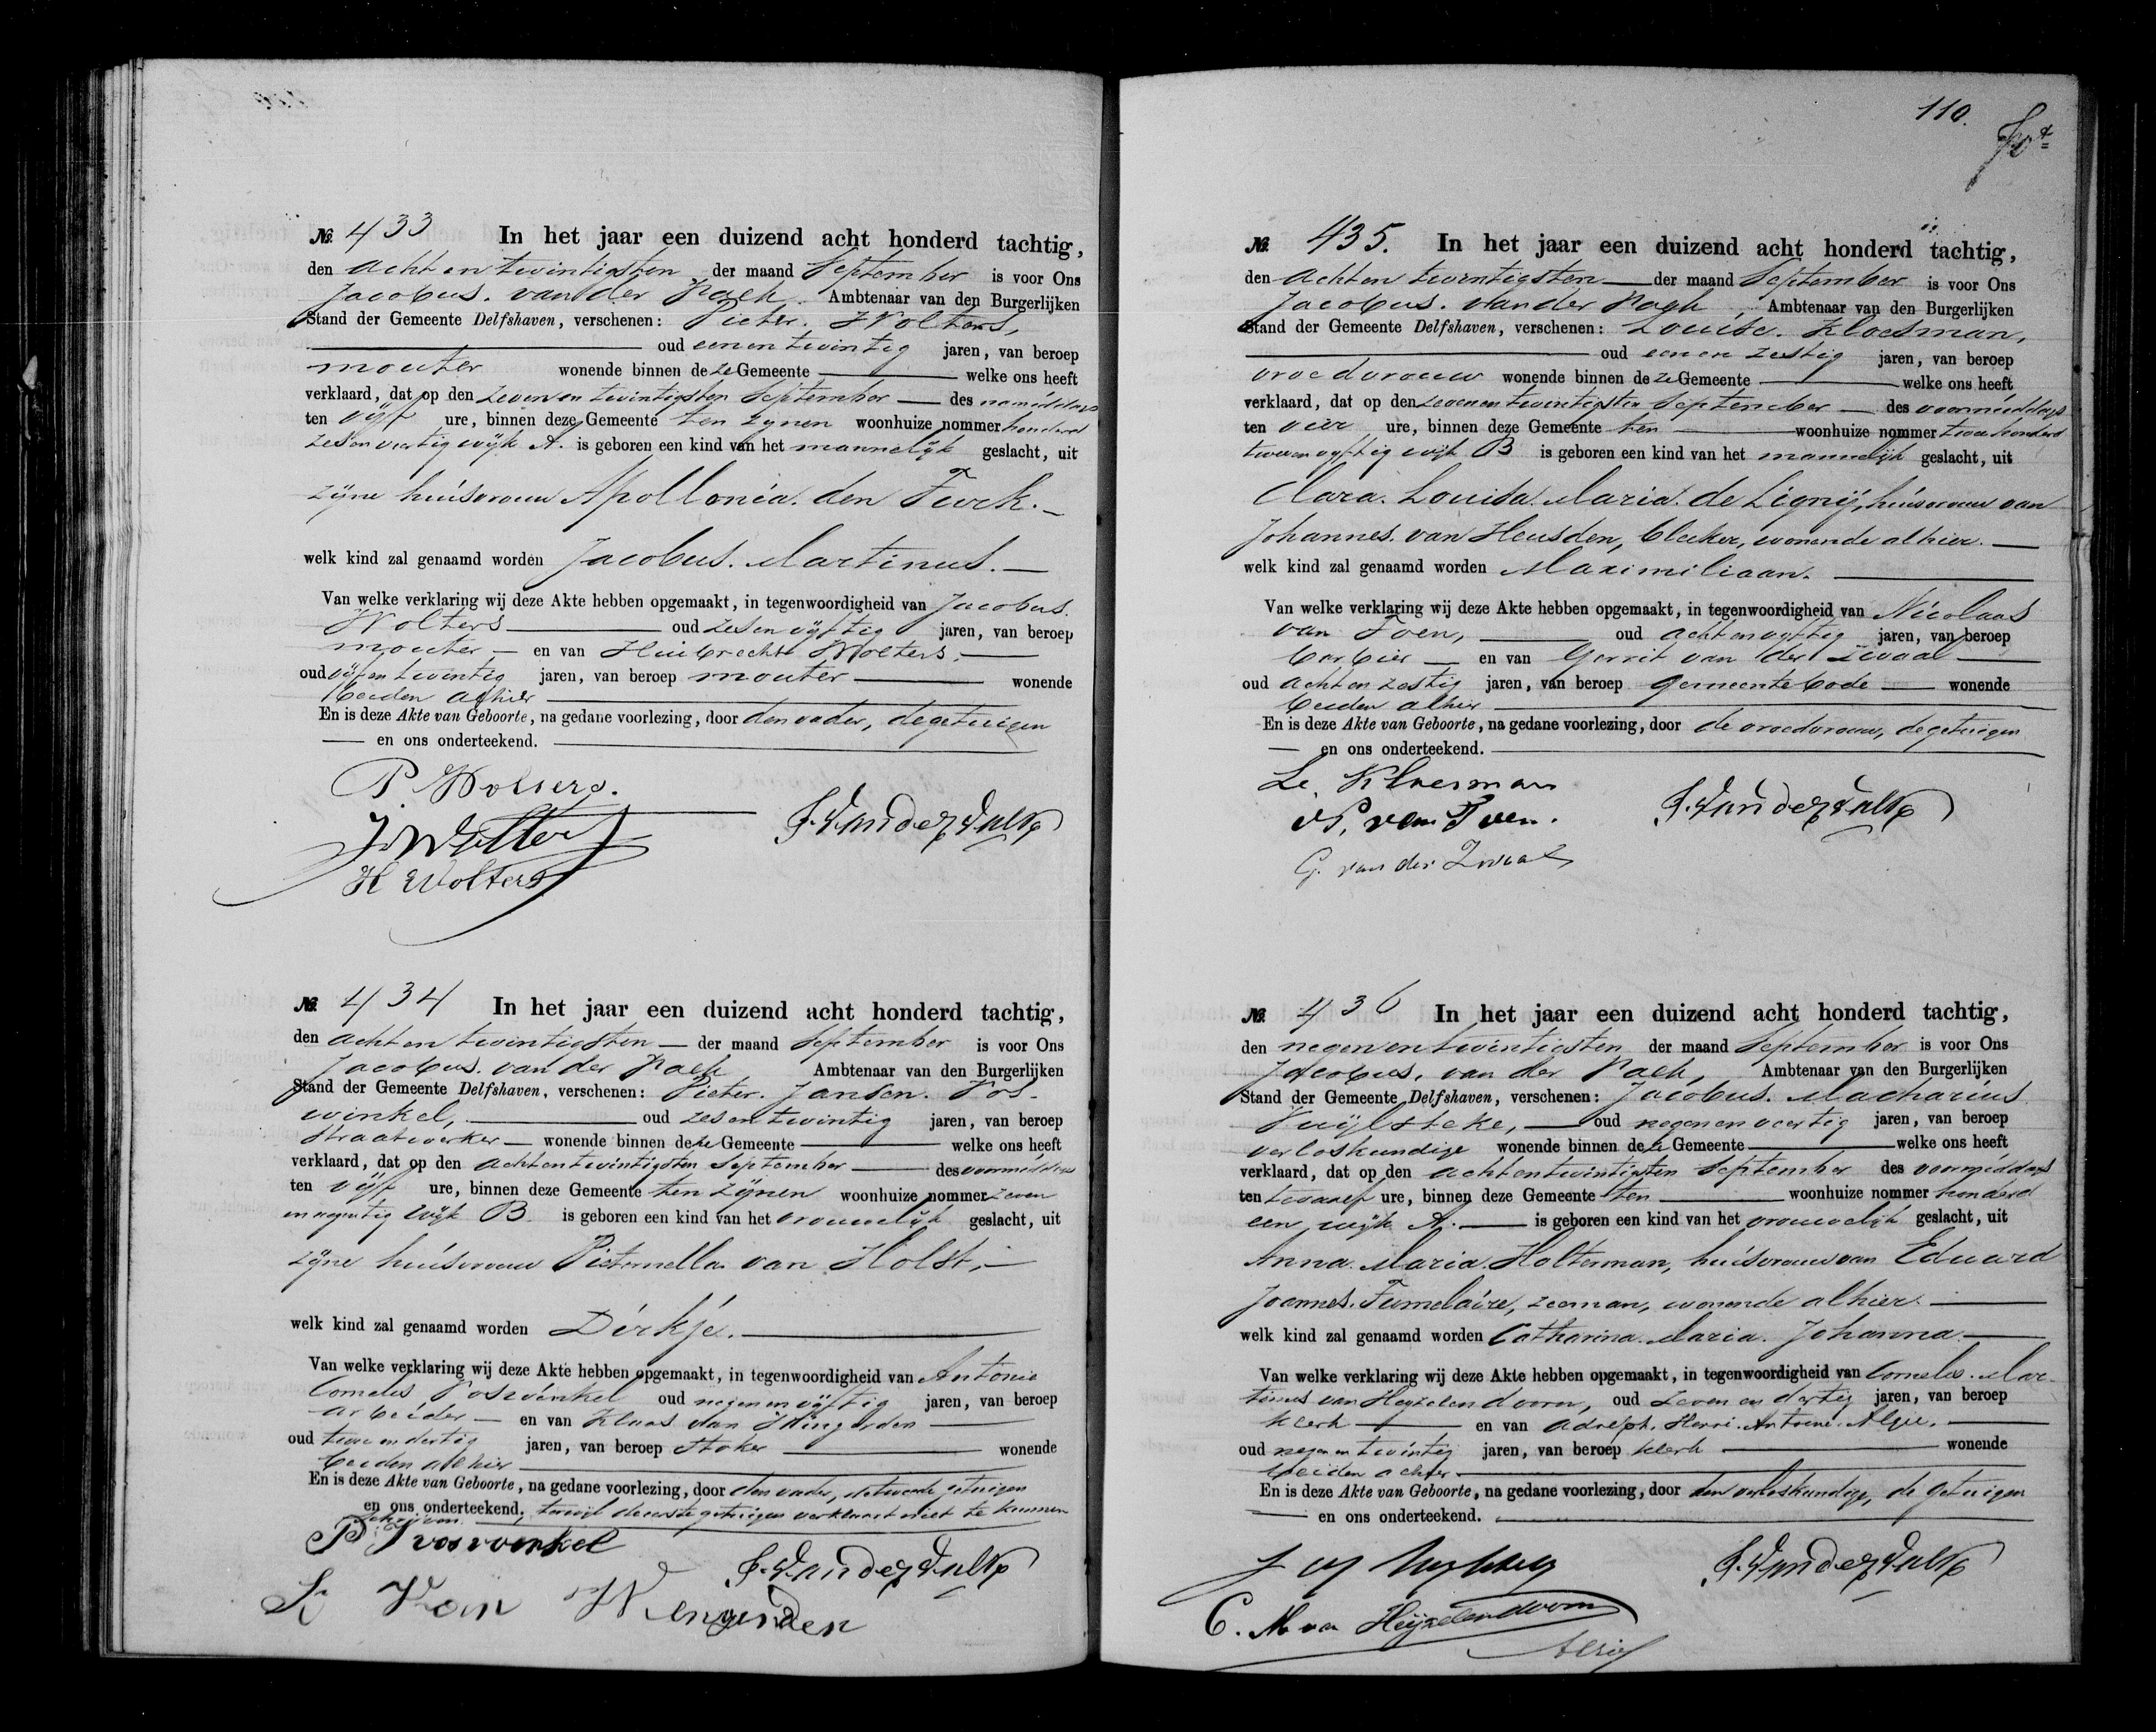 №. 433 In het jaar een duizend acht honderd tachtig,
den achtentwintigsten der maand September is voor Ons
Jacobus van der Ambtenaar van den Burgerlijken
Stand der Gemeente Delfshaven, verschenen: Pieter Wolters,
oud eenentwintig jaren, van beroep
mouter wonende binnen deze Gemeente welke ons heeft
verklaard, dat op den zevenentwintigsten September des namiddags
ten vijf ure, binnen deze Gemeente ten zijnen woonhuize nommer honderd
zesenveertig wijk A. is geboren een kind van het mannelijk geslacht, uit
zijne huisvrouw Apollonia den Turk.
welk kind zal genaamd worden Jacobus Martinus.
Van welke verklaring wij deze Akte hebben opgemaakt, in tegenwoordigheid van Jacobus
Wolters oud zesenvijftig jaren, van beroep
mouter en van Huibrecht Wolters,
oud vijfentwintig jaren, van beroep mouter wonende
beiden alhier
En is deze Akte van Geboorte, na gedane voorlezing, door den vader, de getuigen
en ons onderteekend.
P. Wolters.
J. Wolters
H Wolters
№. 434 In het jaar een duizend acht honderd tachtig,
den achtentwintigsten der maand September is voor Ons
Jacobus van der Ambtenaar van den Burgerlijken
Stand der Gemeente Delfshaven, verschenen: Pieter Jansen Vos-
winkel, oud zesentwintig jaren, van beroep
straatwerker wonende binnen deze Gemeente welke ons heeft
verklaard, dat op den achtentwintigsten September des voormiddags
ten vijf ure, binnen deze Gemeente ten zijnen woonhuize nommer zeven
en negentig wijk B is geboren een kind van het vrouwelijk geslacht, uit
zijne huisvrouw Pieternella van Holst,
welk kind zal genaamd worden Dirkje.
Van welke verklaring wij deze Akte hebben opgemaakt, in tegenwoordigheid van Antonie
Cornelis Voswinkel oud negenenvijftig jaren, van beroep
arbeider en van Klaas van Wingerden
oud tweeendertig jaren, van beroep stoker wonende
beiden alhier
En is deze Akte van Geboorte, na gedane voorlezing, door den vader, de tweede getuigen
en ons onderteekend, terwijl de eerste getuigen verklaart niet te kunnen
schrijven.
P J voswinkel
K van Wengerden
110.
№. 435. In het jaar een duizend acht honderd tachtig,
den achtentwintigsten der maand September is voor Ons
Jacobus van der Ambtenaar van den Burgerlijken
Stand der Gemeente Delfshaven, verschenen: Louise Kloesman,
oud eenenzestig jaren, van beroep
vroedvrouw wonende binnen deze Gemeente welke ons heeft
verklaard, dat op den zevenentwintigsten September des voormiddags
ten vier ure, binnen deze Gemeente ten woonhuize nommer tweehonderd
tweeenvijftig wijk B is geboren een kind van het mannelijk geslacht, uit
Clara Louisa Maria de Ligny, huisvrouw van
Johannes van Heusden, bleeker, wonende alhier.
welk kind zal genaamd worden Maximiliaan.
Van welke verklaring wij deze Akte hebben opgemaakt, in tegenwoordigheid van Nicolaas
van Toen, oud achtenvijftig jaren, van beroep
barbier en van Gerrit van der Zwaal
oud achtenzestig jaren, van beroep gemeentebode wonende
beiden alhier
En is deze Akte van Geboorte, na gedane voorlezing, door de vroedvrouw, de getuigen
en ons onderteekend.
N. van Toen.
G. van der Zwaal
№. 436 In het jaar een duizend acht honderd tachtig,
den negenentwintigsten der maand September is voor Ons
Jacobus van der Ambtenaar van den Burgerlijken
Stand der Gemeente Delfshaven, verschenen: Jacobus Macharius
Vuijlsteke, oud negenenveertig jaren, van beroep
verloskundige wonende binnen deze Gemeente welke ons heeft
verklaard, dat op den achtentwintigsten September des voormiddags
ten twaalf ure, binnen deze Gemeente ten woonhuize nommer honderd
een wijk A. is geboren een kind van het vrouwelijk geslacht, uit
Anna Maria Holterman, huisvrouw van Eduard
Joannes Tumelaire, zeeman, wonende alhier.
welk kind zal genaamd worden Catharina Maria Johanna.
Van welke verklaring wij deze Akte hebben opgemaakt, in tegenwoordigheid van Cornelis Mar-
tinus van Heijzelendoorn, oud zevenendertig jaren, van beroep
klerk en van Adolph Henri Antoine
oud negenentwintig jaren, van beroep klerk wonende
beiden alhier
En is deze Akte van Geboorte, na gedane voorlezing, door den verloskundige, de getuigen
en ons onderteekend.
C. M van Heijzelendoorn